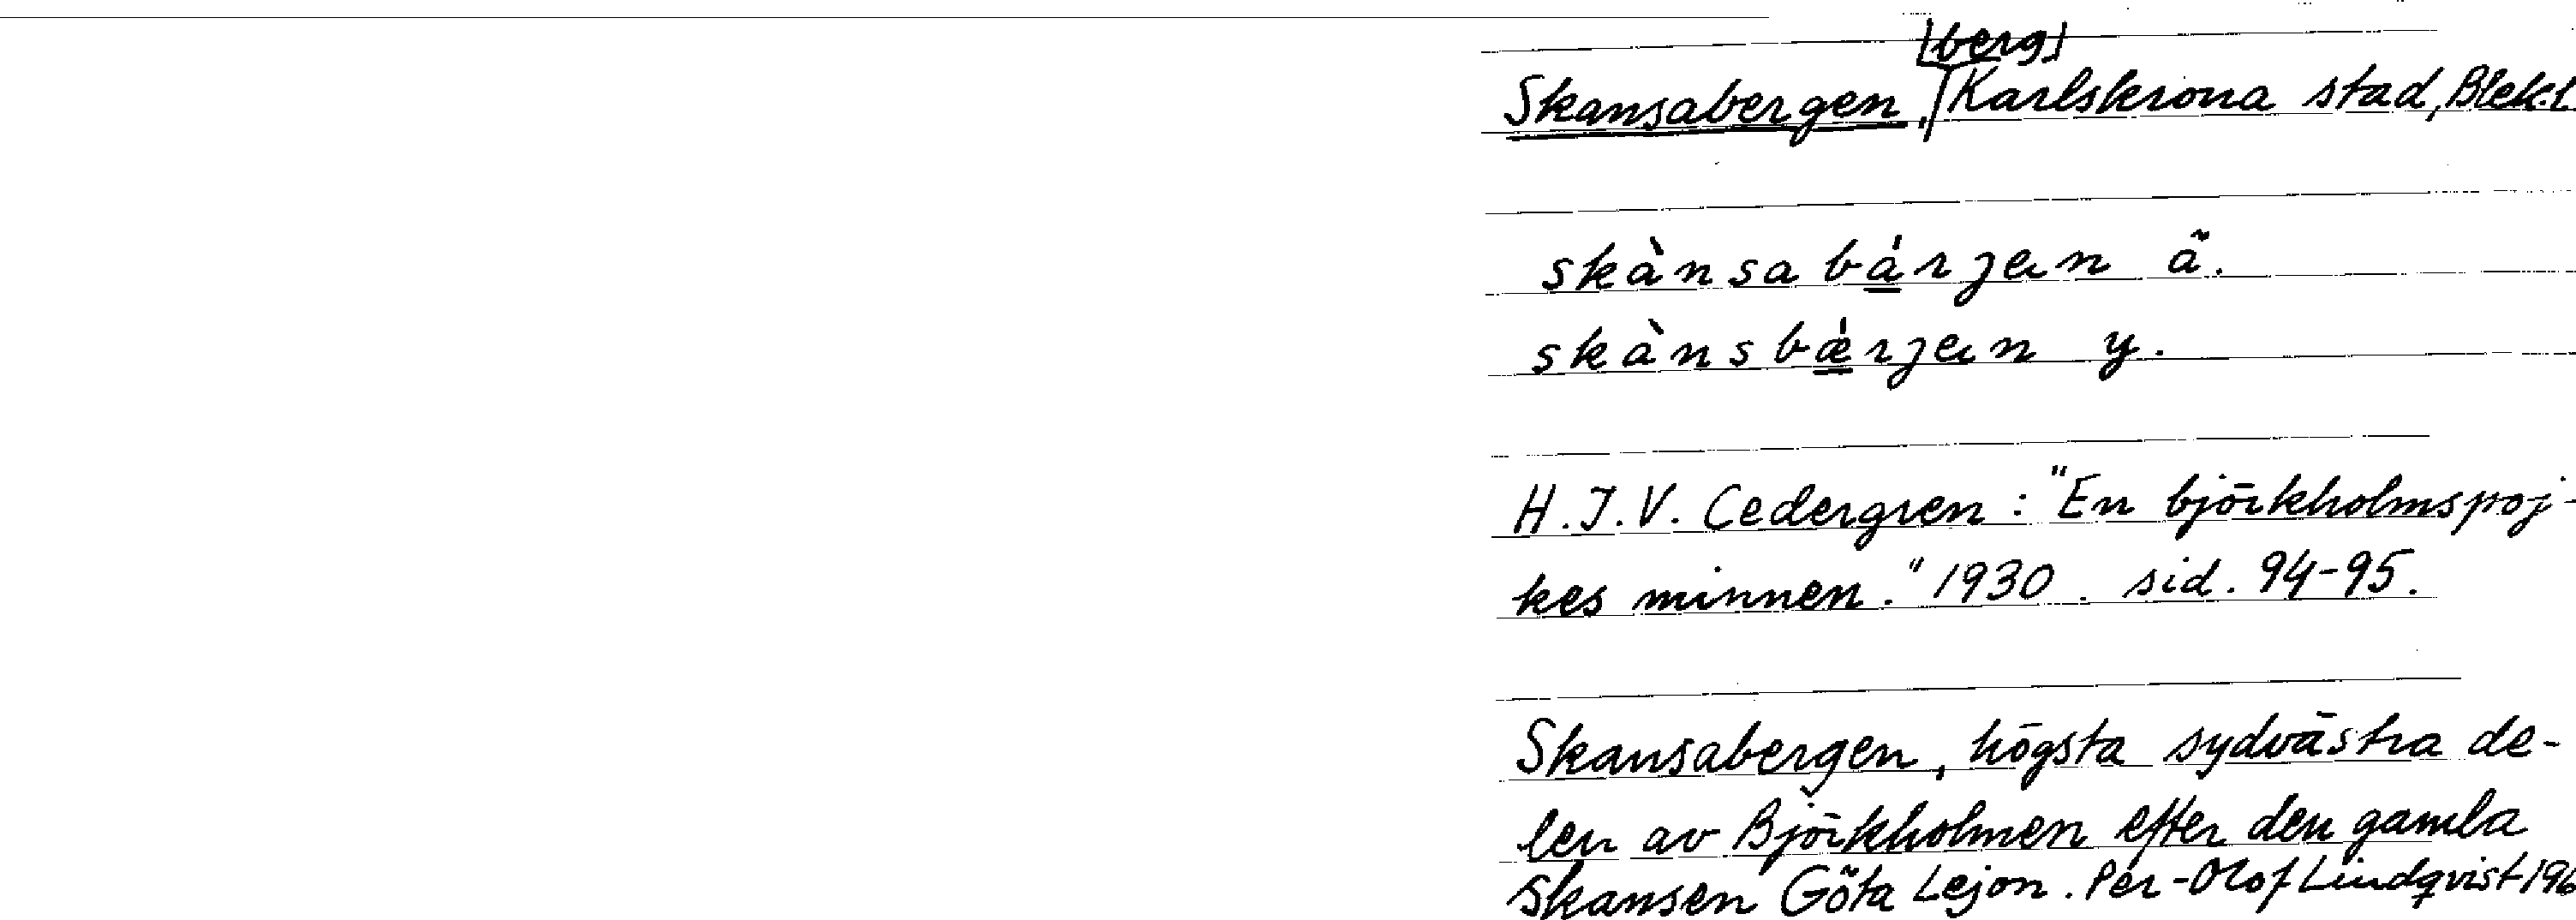 [berg]
Skansabergen, Karlskrona stad, Blek.l.
skànsabárjen ä.
skànsbǽrjen y.
H.J.V. Cedergren: "En björkholmspoj-
kes minnen." 1930. sid. 94-95.
Skansabergen, högsta sydvästra de-
len av Björkholmen efter den gamla
skansen Göta Lejon. Per-Olof Lindqvist 196